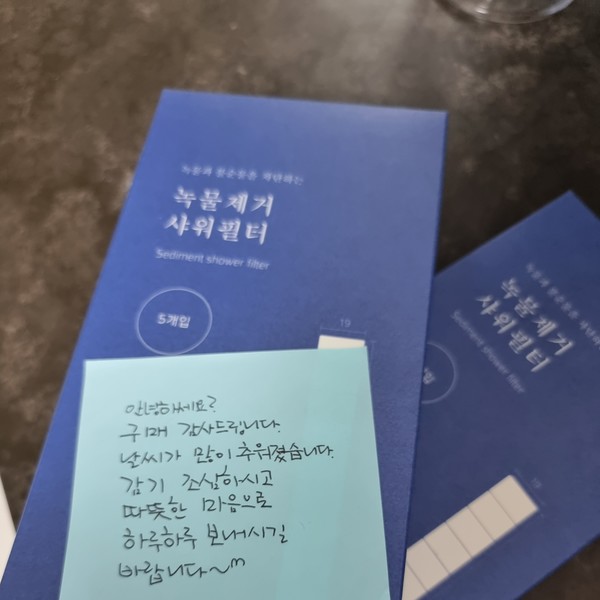 녹물과 불순물을 차단하는
녹물제거
샤워필터
Sediment shower filter
5개입
19
안녕하세요?
구매 감사드립니다.
날씨가 많이 추워졌습니다.
감기 조심하시고
따뜻한 마음으로
하루하루 보내시길
바랍니다~^^
녹물과 불순물을
녹물제거
샤워필터
Sediment shower filter
19